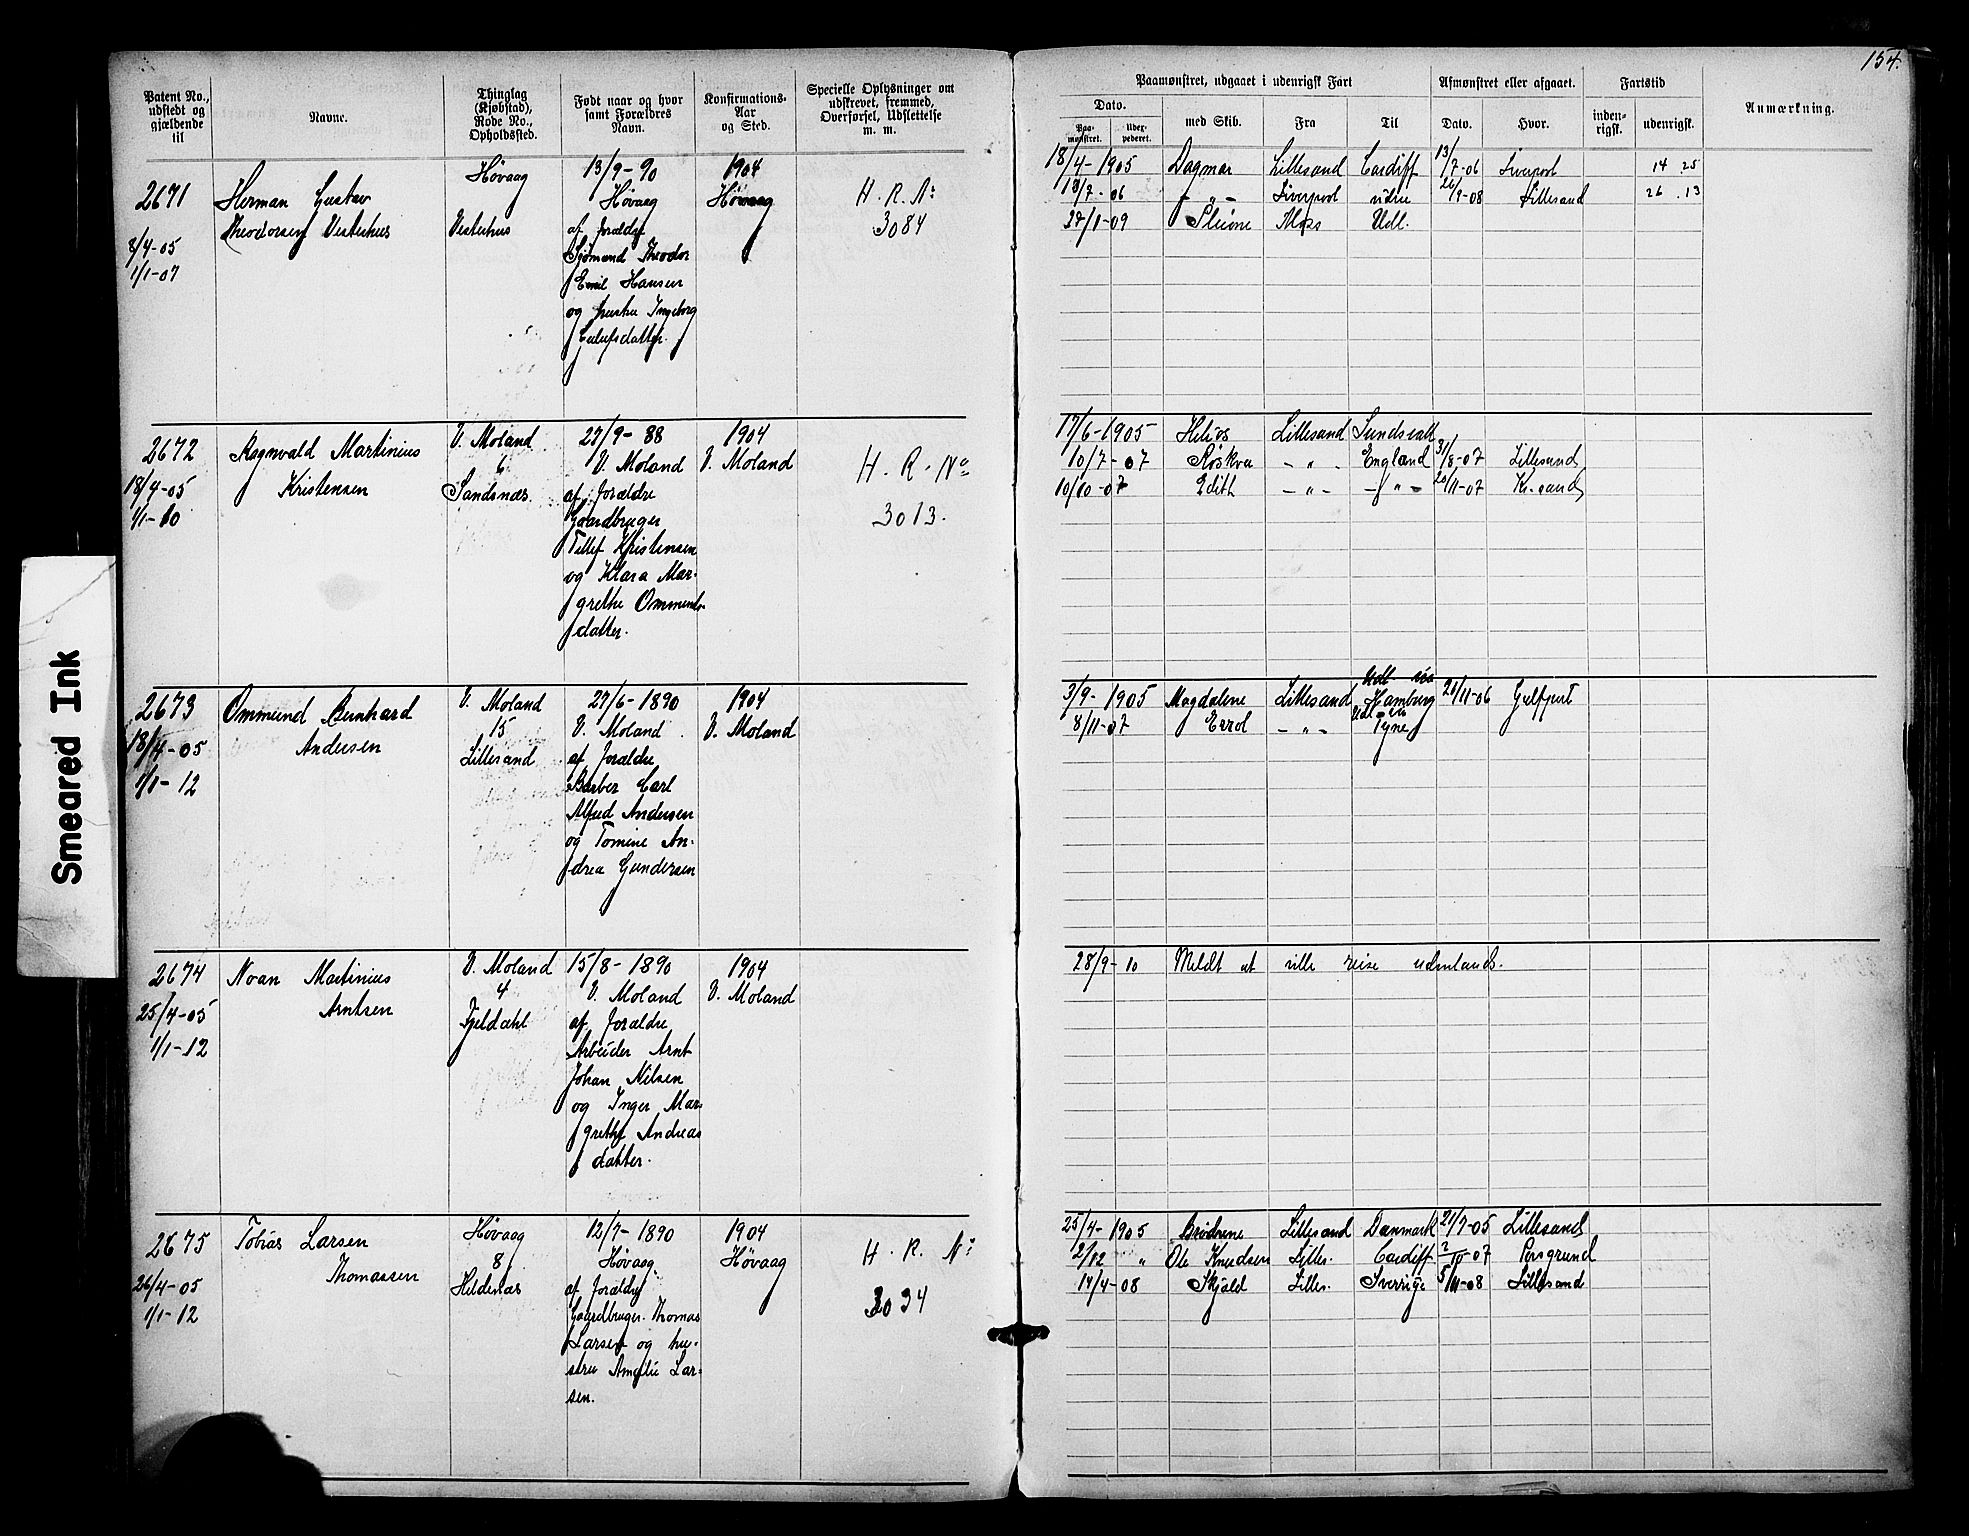 154.
Patent No., udstedt og gjældende til
Navne.
Thinglag (Kjøbstad), Rode No., Opholdssted.
Født naar og hvor samt Forældres Navn.
Konfirmations-Aar og Sted.
Specielle Oplysninger om udskrevet, fremmed, Overførsel, Udslettelse m. m.
Paamønstret, udgaaet i udenrigsk Fart
Afmønstret eller afgaaet.
Fartstid
Anmærkning.
Dato.
Paa-mønstret.
Uder-pederet.
med Skib.
Fra
Til
Dato.
Hvor.
inden-rigsk.
udenrigsk.
Smeared Ink
2671
8/4-05
1/1-07
Herman Gustav
Theodorsen Vesterhus
Høvaag
Vesterhus
13/9-90
Høvaag
af forældre
Sjømand Theodor
Emil Hansen
og hustru Ingeborg
1904
Høvaag
H. R. No
3084
18/4-1905 Dagmar Lillesand Cardiff 13/7-06 Liverpool 14 . 25
13/7-06 - " - Liverpool 26/9-08 Lillesand 26 . 13
27/1-09 Pleione Moss Udl.
2672
18/4-05
1/1-10
Ragnvald Martinius
Kristensen
V. Moland
6
Sandsnæs.
27/9-88
V. Moland
af forældre
Gaardbruger
Tellef Kristensen
og Klara Mar-
grethe Ommunds-
datter.
1904
V. Moland
H. R. No
3013.
17/6-1905 Helios Lillesand Sundsvall
10/7-07 Røskva - " - England 31/8-07 Lillesand
10/10-07 Edith - " - - " - 20/11-07 Kr.sand
2673
18/4-05
1/1-12
Ommund Bernhard
Andersen
V. Moland
15
Lillesand
27/6-1890
V. Moland
af forældre
Barber Carl
Alfred Andersen
og Tomine An-
drea Gundersen
1904
V. Moland
Udl via
3/9-1905 Magdalene Lillesand Hamburg 20/11-06 Gulfport
8/11-07 Errol - " - Udl via Tyne
2674
25/4-05
1/1-12
Noan Martinius
Arntsen
V. Moland
4
Fjeldahl
15/8-1890
V. Moland
af forældre
Arbeider Arnt
Johan Nilsen
og Inger Mar-
grethe Andreas
datter.
1904
V. Moland
28/9-10 Meldt at ville reise udenlands.
2675
26/4-05
1/1-12
Tobias Larsen
Thomassen
Høvaag
8
Heldesnæs
12/7-1890
Høvaag
af forældre
Gaardbruger Thomas
Larsen og hu-
stru Amalie Lar-
sen.
1904
Høvaag
H. R. No
3034
25/4-1905 Brødrene Lillesand Danmark 21/7-05 Lillesand
2/12 " Ole Knudsen Lilles. Cardiff 2/10-07 Porsgrund
14/4-08 Skjold Lilles. Sverrige 5/11-08 Lillesand